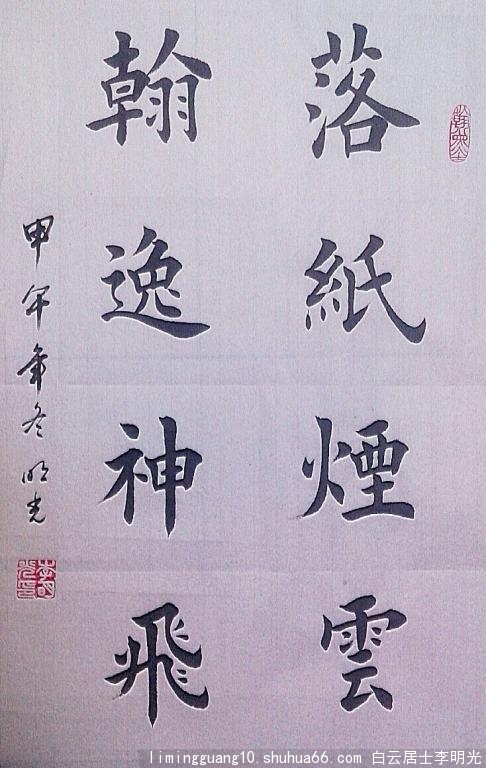 落紙煙雲
翰逸神飛
甲午年冬 明光
limingguang10.shuhua66.com 白云居士李明光